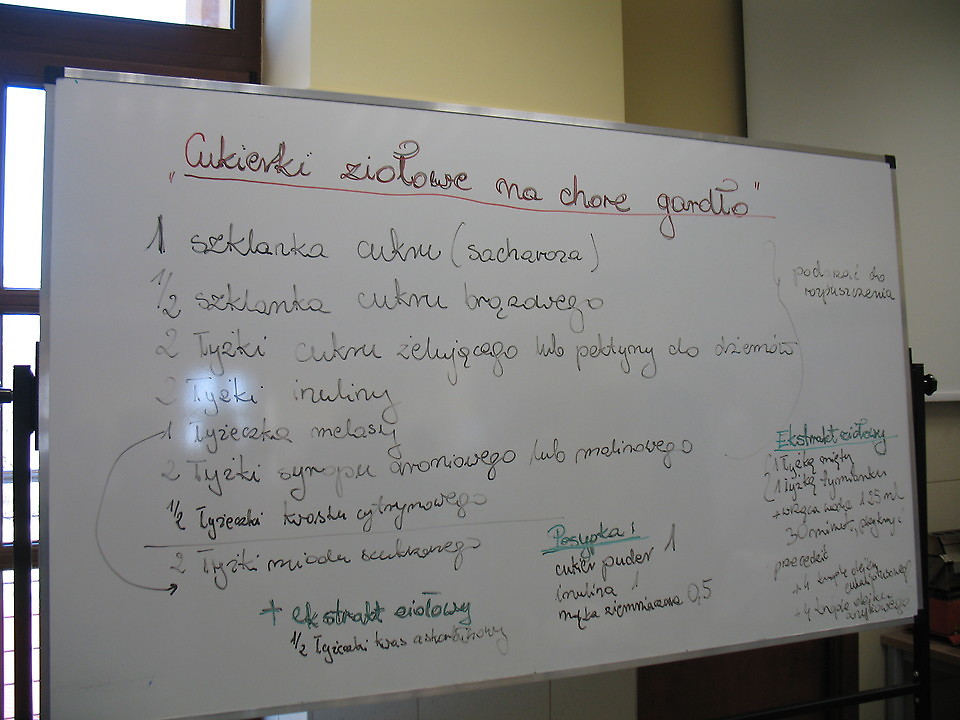 "Cukierki ziołowe na chore gardło"
1 szklanka cukru (sacharoza)
1/2 szklanka cukru brązowego
2 łyżki cukru żelującego lub pektyny do dżemów
2 łyżki inuliny
1 łyżeczka melasy
2 łyżki syropu aroniowego lub malinowego
1/2 łyżeczki kwasku cytrynowego
2 łyżki miodu
podgrzać do
rozpuszczenia
+ ekstrakt ziołowy
1/2 łyżeczki kwas askorbinowy
Posypka:
cukier puder 1
inulina 1
mąka ziemniaczana 0,5
Ekstrakt ziołowy
1 łyżka mięty
1 łyżka tymianku
+ wrząca woda 125 ml
30 minut,
przecedzić
+ 4 krople olejku
eukaliptusowego
+ 4 krople olejku